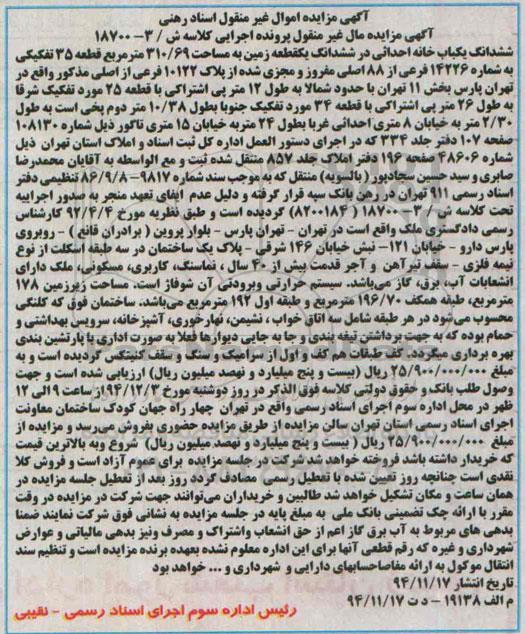 آگهی مزایده اموال غیر منقول اسناد رهنی
آگهی مزایده مال غیر منقول پرونده اجرایی کلاسه ش / ۳- ۱۸۷۰۰
ششدانگ یکباب خانه احداثی در ششدانگ یکقطعه زمین به مساحت ۳۱۰/۶۹ مترمربع قطعه ۳۵ تفکیکی
به شماره ۱۴۲۲۶ فرعی از ۸۸ اصلی مفروز و مجزی شده از پلاک ۱۰۱۲۲ فرعی از اصلی مذکور واقع در
تهران پارس بخش ۱۱ تهران با حدود شمالا به طول ۱۲ متر پی اشتراکی با قطعه ۲۵ مورد تفکیک شرقا
به طول ۲۶ متر پی اشتراکی با قطعه ۳۴ مورد تفکیک جنوبا بطول ۱۰/۳۸ متر دوم پخی است به طول
۲/۳۰ متر به خیابان ۸ متری احداثی غربا بطول ۲۴ متر به خیابان ۱۵ متری تاکور ذیل شماره ۱۰۸۱۳۰
صفحه ۱۰۷ دفتر جلد ۳۳۴ که در اجرای دستور العمل اداره کل ثبت اسناد و املاک استان تهران ذیل
شماره ۴۸۶۰۶ صفحه ۱۹۶ دفتر املاک جلد ۸۵۷ منتقل شده ثبت و مع الواسطه به آقایان محمدرضا
صابری و سید حسین سجادپور (بالسویه) منتقل که به موجب سند شماره ۹۸۱۷- ۸۶/۹/۸ تنظیمی دفتر
اسناد رسمی ۹۱۱ تهران در رهن بانک سپه قرار گرفته و دلیل عدم ایفای تعهد منجر به صدور اجراییه
تحت کلاسه ش / ۳- ۱۸۷۰۰ (۸۲۰۰۱۸۴) گردیده است و طبق نظریه مورخ ۹۲/۴/۴ کارشناس
رسمی دادگستری ملک واقع است در تهران - تهران پارس - بلوار پروین (برادران قانع) - روبروی
پارس دارو - خیابان ۱۲۱- نبش خیابان ۱۴۶ شرقی - پلاک یک ساختمان در سه طبقه اسکلت از نوع
نیمه فلزی - سقف تیرآهن و آجر قدمت بیش از ۴۰ سال، نماسنگ، کاربری، مسکونی، ملک دارای
انشعابات آب، برق، گاز می‌باشد. سیستم حرارتی وبرودتی آن شوفاژ است. مساحت زیرزمین ۱۷۸
مترمربع، طبقه همکف ۱۹۶/۷۰ مترمربع و طبقه اول ۱۹۲ مترمربع می‌باشد. ساختمان فوق که کلنگی
محسوب می‌شود در هر طبقه شامل سه اتاق خواب، نشیمن، نهارخوری، آشپزخانه، سرویس بهداشتی و
حمام بوده که به جهت برداشتن تیغه بندی و جا به جایی دیوارها فعلا به صورت اداری با پارتشین بندی
بهره برداری میگردد. کف طبقات هم کف و اول از سرامیک و سنگ و سقف کنیتکس گردیده است و به
مبلغ ۲۵/۹۰۰/۰۰۰/۰۰۰ ریال (بیست و پنج میلیارد و نهصد میلیون ریال) ارزیابی شده است و جهت
وصول طلب بانک و حقوق دولتی کلاسه فوق الذکر در روز دوشنبه مورخ ۹۴/۱۲/۳ از ساعت ۹ الی ۱۲
ظهر در محل اداره سوم اجرای اسناد رسمی واقع در تهران چهار راه جهان کودک ساختمان معاونت
اجرای اسناد رسمی استان تهران سالن مزایده از طریق مزایده حضوری بفروش می‌رسد و مزایده از
مبلغ ۲۵/۹۰۰/۰۰۰/۰۰۰ ریال (بیست و پنج میلیارد و نهصد میلیون ریال) شروع وبه بالاترین قیمت
که خریدار داشته باشد فروخته خواهد شد شرکت در جلسه مزایده برای عموم آزاد است و فروش کلا
نقدی است چنانچه روز تعیین شده با تعطیل رسمی مصادف گردد روز بعد از تعطیل جلسه مزایده در
همان ساعت و مکان تشکیل خواهد شد طالبین و خریداران می‌توانند جهت شرکت در مزایده در وقت
مقرر با ارائه چک تضمینی بانک ملی به مبلغ پایه در جلسه مزایده به نشانی فوق شرکت نمایند ضمنا
بدهی های مربوط به آب برق گاز اعم از حق انشعاب واشتراک و مصرف ونیز بدهی مالیاتی و عوارض
شهرداری و غیره که رقم قطعی آنها برای این اداره معلوم نشده بعهده برنده مزایده است و تنظیم سند
انتقال موکول به ارائه مفاصاحسابهای دارایی و شهرداری و ... خواهد بود
تاریخ انتشار ۹۴/۱۱/۱۷
م الف ۱۹۱۳۸ - د ت ۹۴/۱۱/۱۷
رئیس اداره سوم اجرای اسناد رسمی - نقیبی